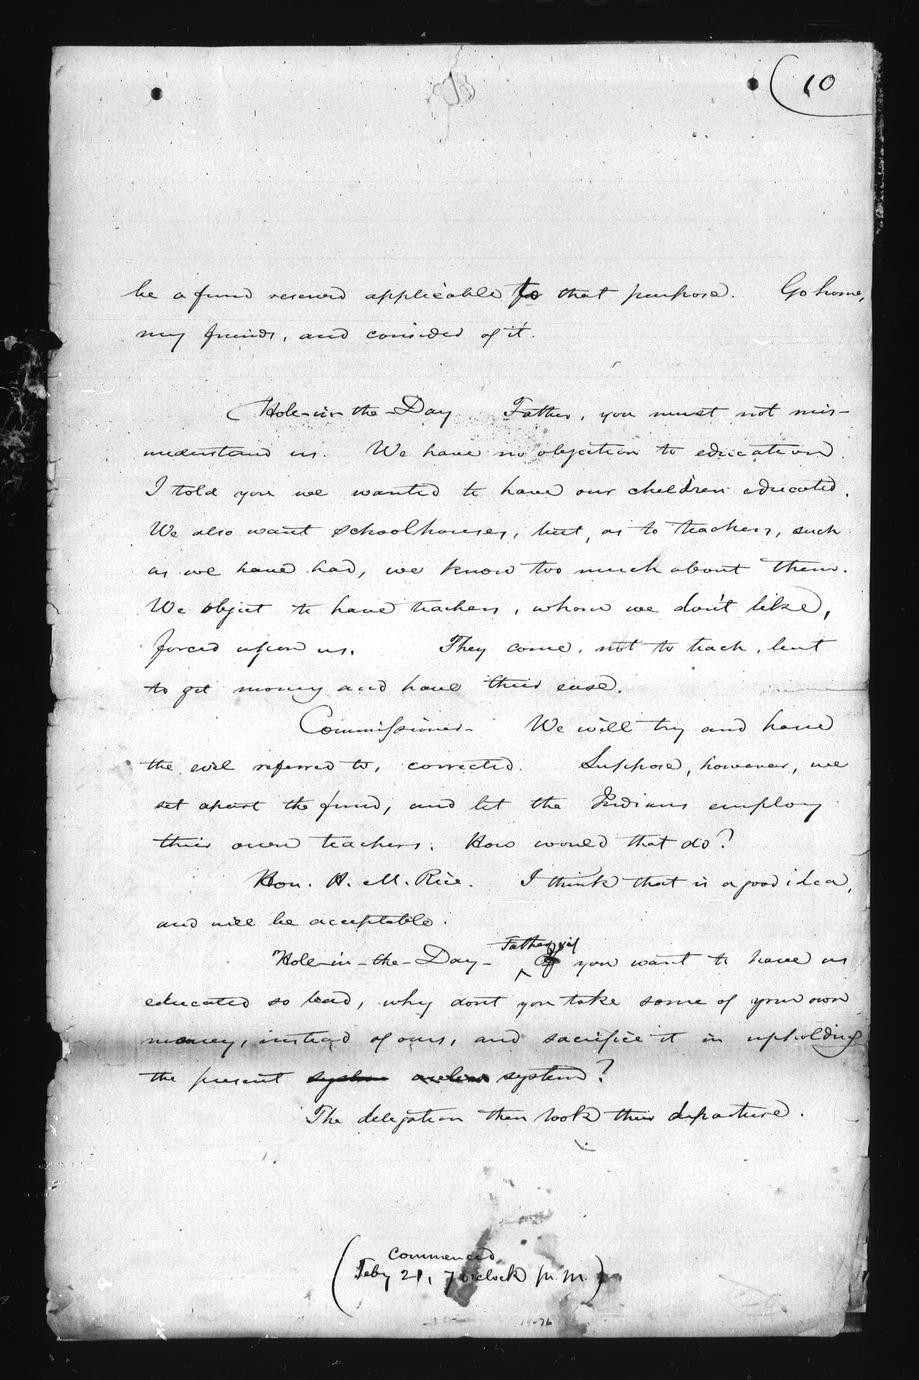 (10
be a fund reserved applicable to that purpose. Go home,
my friends, and consider of it.
Hole-in-the-Day Father, you must not mis-
understand us. We have no objection to education.
I told you we wanted to have our children educated.
We also want schoolhouses, but, as to teachers, such
as we have had, we know too much about them.
We object to have teachers, whom we don't like,
forced upon us. They come, not to teach, but
to get money and have their ease.
Commissioner- We will try and have
the evil referred to, corrected. Suppose, however, we
set apart the fund, and let the Indians employ
their own teachers. How would that do?
Hon. H. M. Rice. I think that is a good idea,
and will be acceptable.
Hole-in-the-Day- Father, if you want to have us
educated so bad, why dont you take some of your own
money, instead of ours, and sacrifice it in upholding
the present system system?
The delegation then took their departure.
(Commenced
Feby 21, 7 o'clock p.m.)